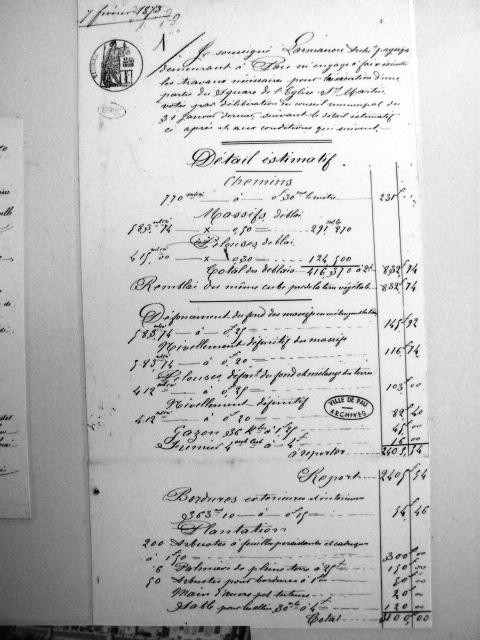 7 février 1873
Je soussigné Larmanou Archte paysagiste
demeurant à Pau m'engage à faire exécuter
les travaux nécessaires pour la création d'une
partie du Square de l'Eglise St Martin
votés par délibération du conseil municipal du
31 Janvier dernier, suivant le détail estimatif
ci après et aux conditions qui suivent.
Détail estimatif
Chemins
770 mètres à 0f 30 231f
Massifs déblai
583m 74 x 0,50 291 870
Pelouses déblai
415m 00 x 0,30 124 500
Total des déblais 416,370 à 2f 832f 74
Remblai du même cube par de la terre végétale 832f 74
Défoncement du fond des massifs
583 74 à 0f 25 145f 92
Nivellement définitif des massifs
583 74 à 0f 20 116f 74
Pelouses, défonct du fond et mélange des terres
412 mètres à 0f 25 103f 00
Nivellement définitif
412 mètres à 0f 20 82f 40
Gazon 36 K à 1f 25 45f 00
Fumier 4 à 4f 16 00
à reporter 2405f 54
VILLE DE PAU
ARCHIVES
Report 2405f 54
Bordures extérieures et intérieures
363m 10 à 0f 15 54f 46
Plantation
200 Arbustes à feuilles persistantes et caduques
à 1f 50 300f 00
6 Palmiers de pleine terre à 25f 150f 00
50 Arbustes pour bordures à 1f 50f 00
Main d'œuvre 20f 00
Sable pour allées 30 à 4f 120 00
Total 3100f 00